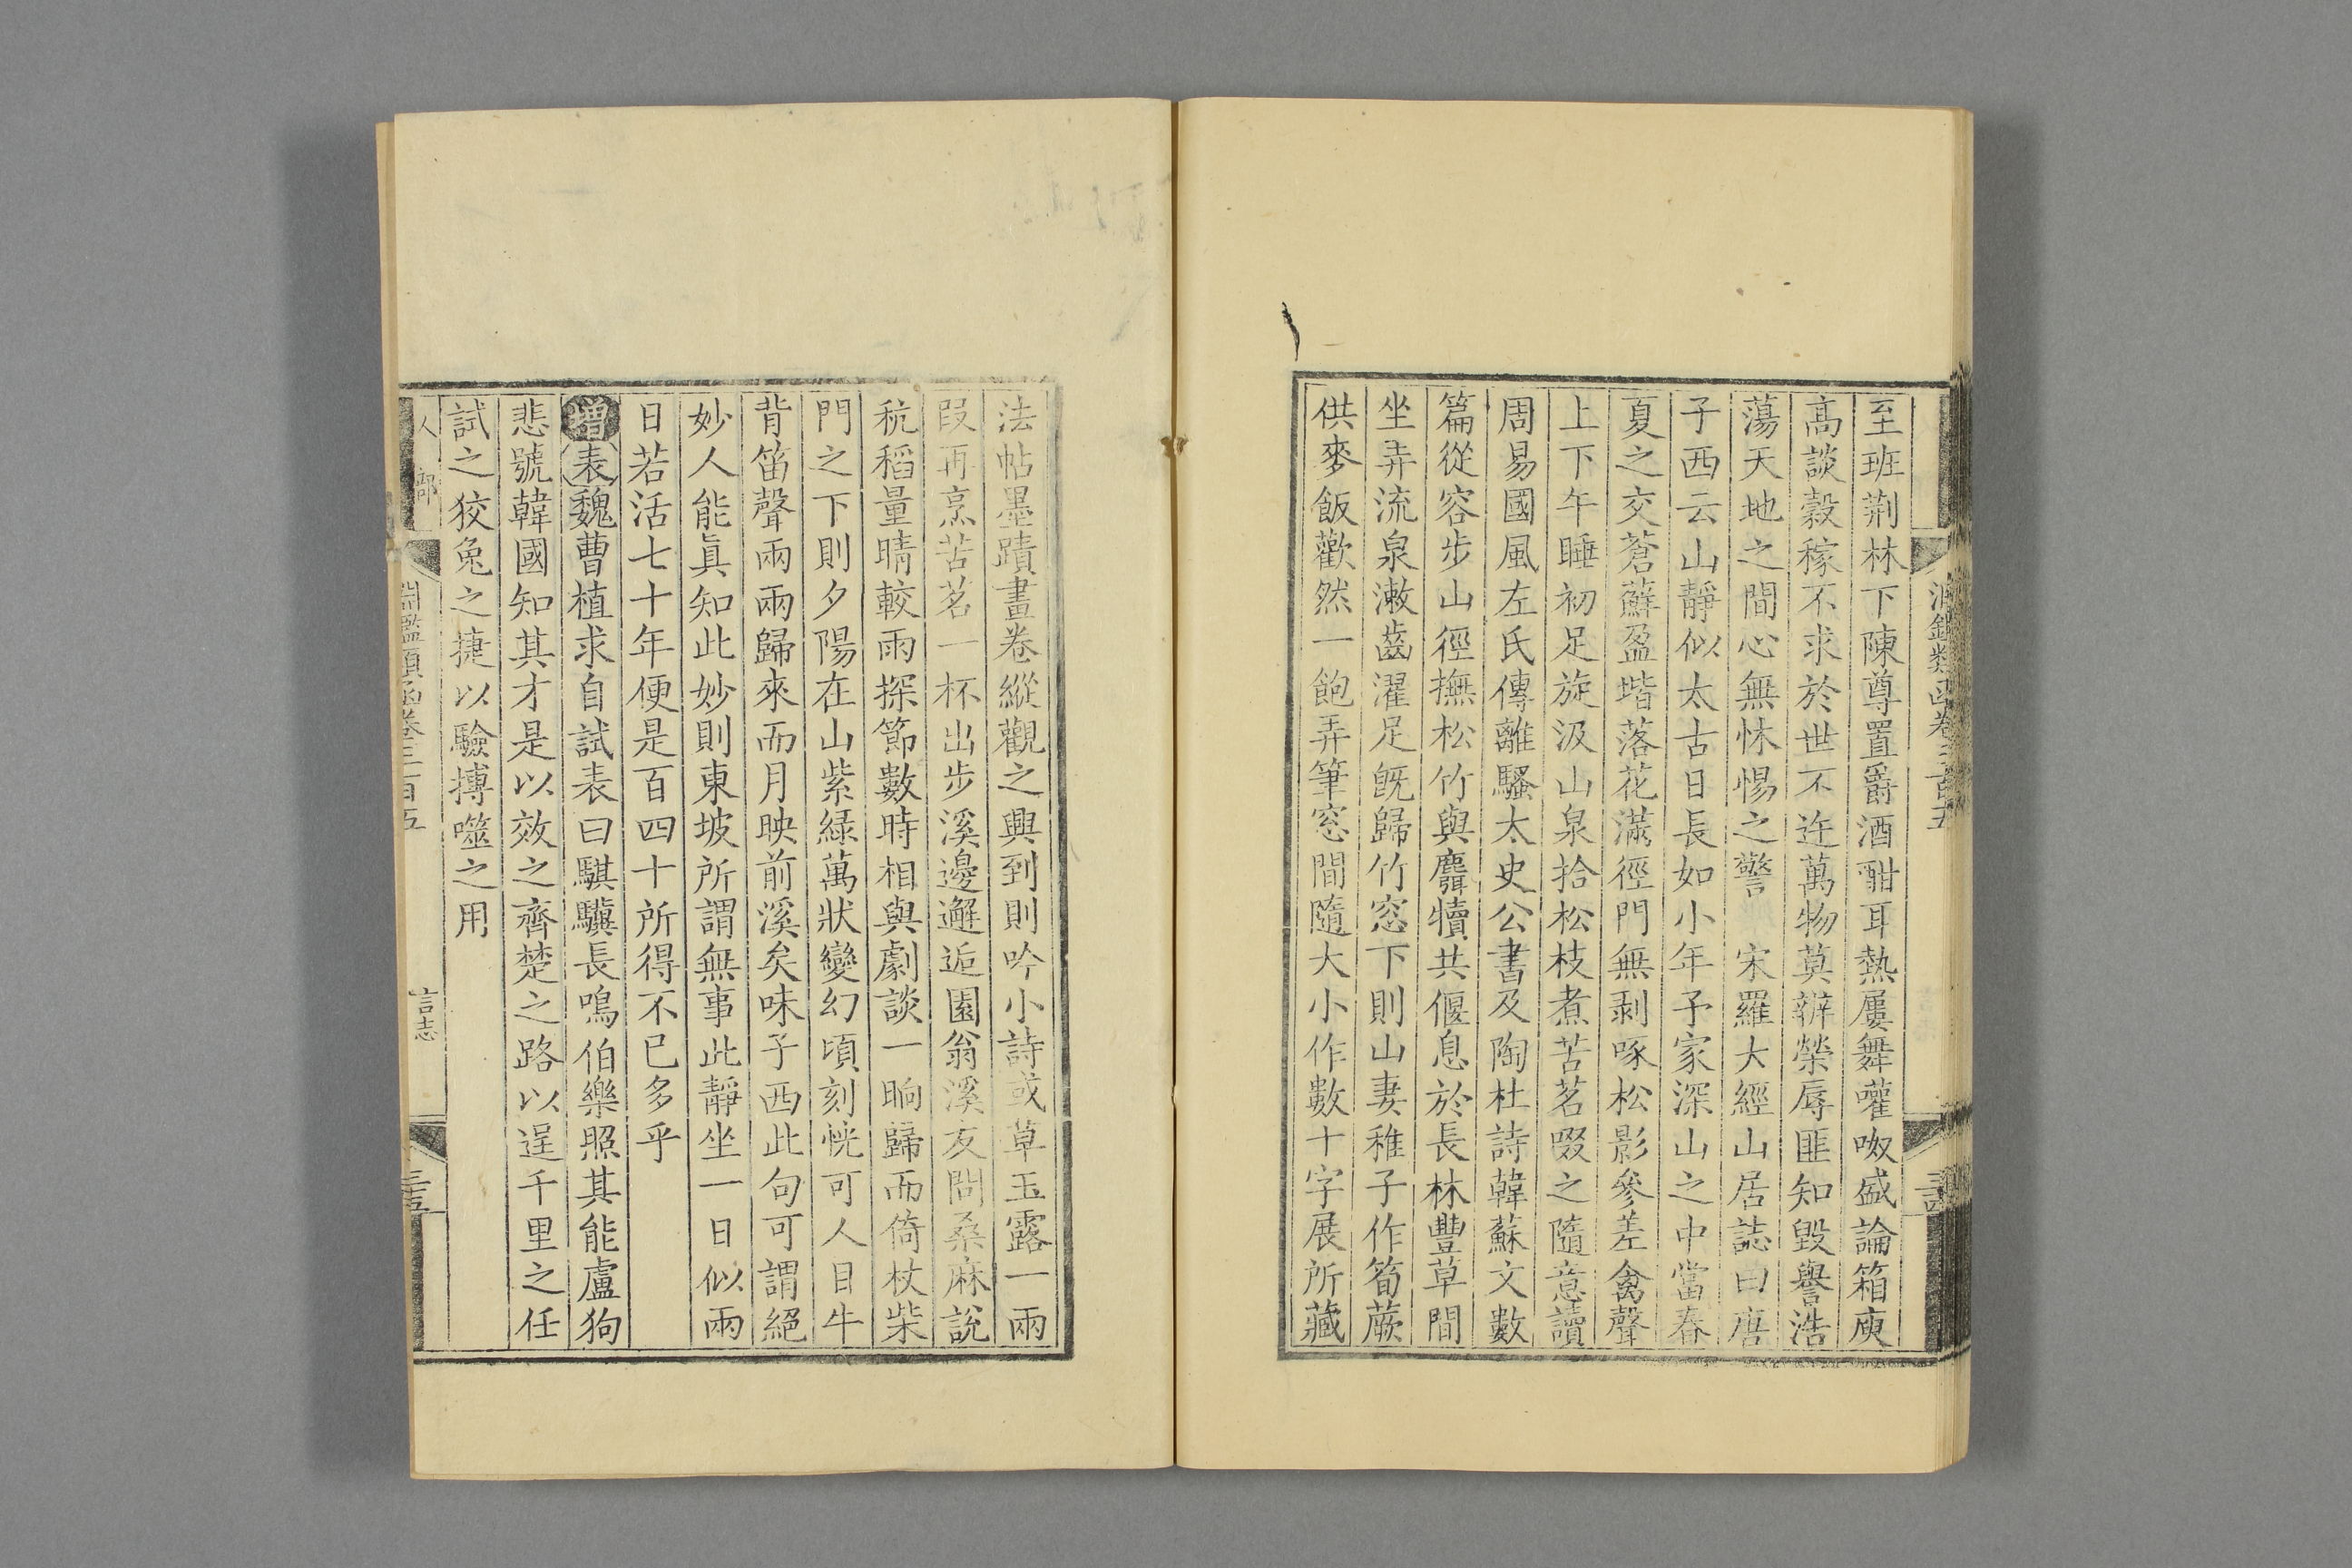 淵鑑類函卷三百五
三十四
至班荆林下陳尊置爵酒酣耳熱屢舞嚾呶盛論箱庾
高談穀稼不求於世不迕萬物莫辨榮辱匪知毀譽浩
蕩天地之間心無怵惕之警 宋羅大經山居誌曰唐
子西云山靜似太古日長如小年予家深山之中當春
夏之交蒼蘚盈堦落花滿徑門無剥啄松影參差禽聲
上下午睡初足旋汲山泉拾松枝煮苦茗啜之隨意讀
周易國風左氏傳離騷太史公書及陶杜詩韓蘇文數
篇從容步山徑撫松竹與麛犢共偃息於長林豐草間
坐弄流泉漱齒濯足旣歸竹窓下則山妻稚子作筍蕨
供麥飯歡然一飽弄筆窓間隨大小作數十字展所藏
法帖墨蹟畫卷縱觀之興到則吟小詩或草玉露一兩
段再烹苦茗一杯出步溪邊邂逅園翁溪友問桑麻說
秔稻量晴較雨探節數時相與劇談一晌歸而倚杖柴
門之下則夕陽在山紫綠萬狀變幻頃刻恍可人目牛
背笛聲兩兩歸來而月映前溪矣味子西此句可謂絕
妙人能眞知此妙則東坡所謂無事此靜坐一日似兩
日若活七十年便是百四十所得不已多乎
增表魏曹植求自試表曰騏驥長鳴伯樂照其能盧狗
悲號韓國知其才是以效之齊楚之路以逞千里之任
試之狡兔之捷以驗搏噬之用
人部
淵鑑類函卷三百五
言志
三十五